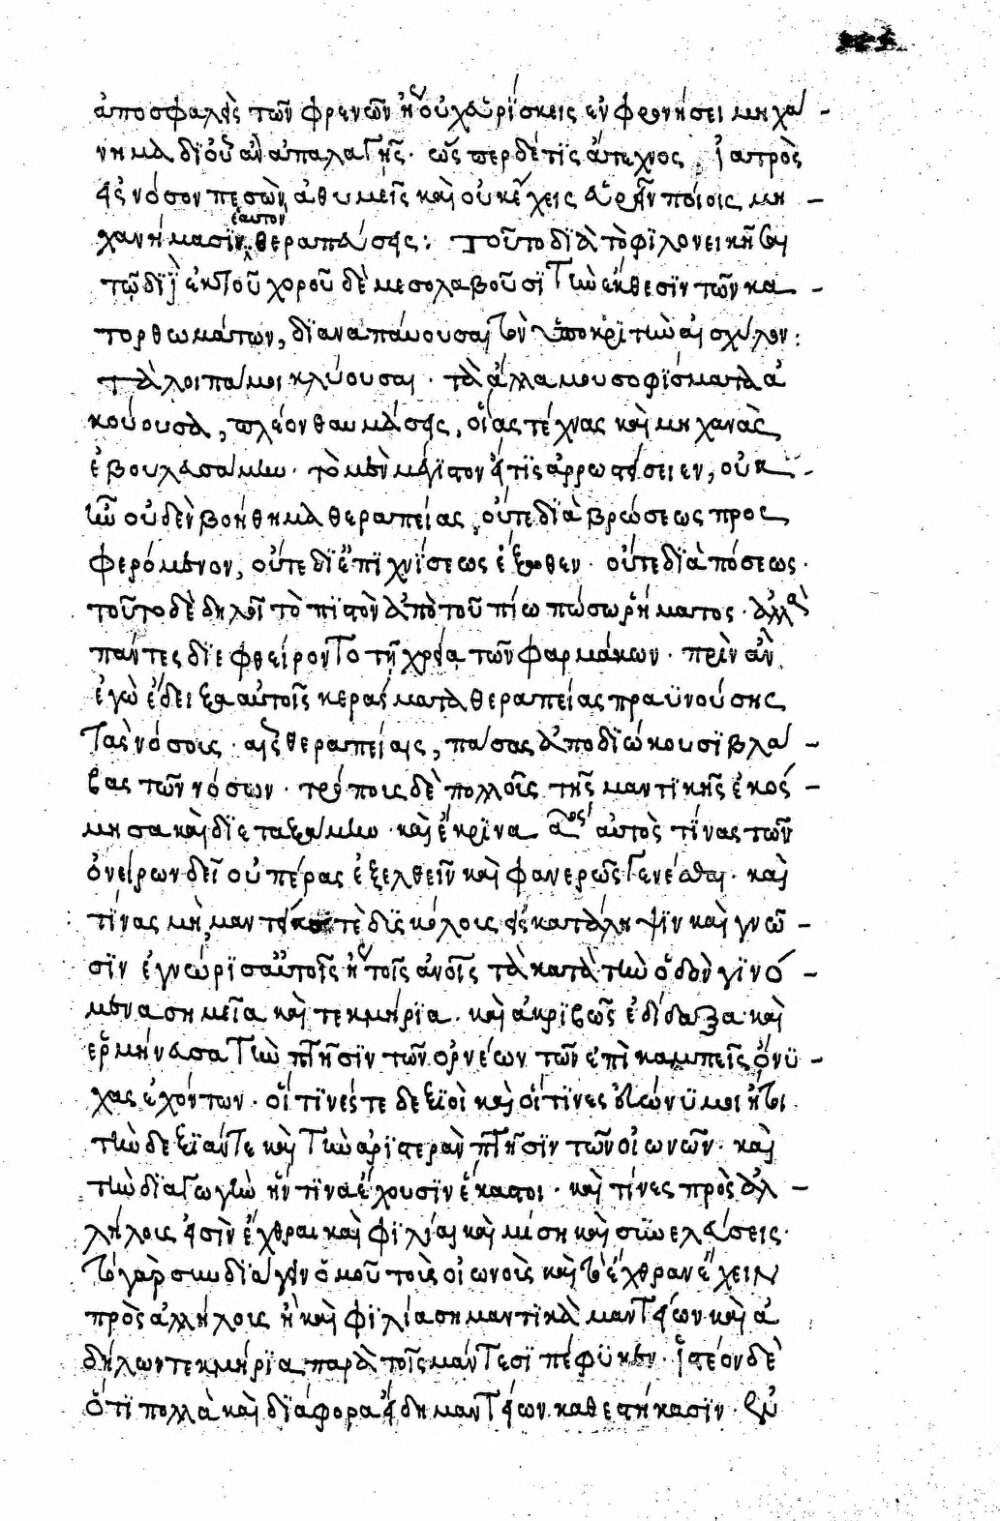 ἀποσφαλεὶς τῶν φρενῶν ἢ οὐχ εὑρίσκεις ἐν φρονήσει μηχα-
νημα δι οὗ ἂν ἀπαλαγῆς. ὥσπερ δέ τις ἄτεχνος ἰατρὸς
εἰς νόσον πεσὼν ἀθυμεῖς καὶ οὐκ ἔχεις εὑρεῖν ποίοις μη-
χανήμασιν ἑαυτὸν θεραπεύσεις: τοῦτο διὰ τὸ φιλονεικῆσαι
τῷ διῒ ἐκ τοῦ χοροῦ δὲ μεσολαβοῦσι τὴν ἔκθεσιν τῶν κα-
τορθωμάτων, διαναπαύουσαι τὸν ὑποκριτὴν αἰσχύλον:
Τὰ λοιπά μοι κλύουσα. τὰ ἄλλα μου σοφίσματα ἀ
κούουσα, πλέον θαυμάσεις, οἵας τέχνας καὶ μηχανὰς
ἐβουλευσάμην. τὸ μὲν μέγιστον εἴ τις ἀρρωστήσειεν, οὐκ
ἦν οὐδὲν βοήθημα θεραπείας, οὔτε διὰ βρώσεως προς
φερόμενον, οὔτε δι ἐπιχρίσεως ἔξωθεν. οὔτε διὰ πόσεως.
τοῦτο δὲ δηλοῖ τὸ πιστὸν ἀπὸ τοῦ πίω πώσω ῥήματος. ἀλλὰ
πάντες διεφθείροντο τῇ χρεία τῶν φαρμάκων. πρὶν ἂν
ἐγὼ ἔδειξα αὐτοῖς κεράσματα θεραπείας πραϋνούσης
τὰς νόσους. αἷς θεραπείαις, πάσας ἀποδιώκουσι βλά-
βας τῶν νόσων. τρόπους δὲ πολλοὺς τῆς μαντικῆς ἐκόσ-
μησα καὶ διεταξάμην. καὶ ἔκρινα αὐτὸς τίνας τῶν
ὀνείρων δεῖ οὐ πέρας ἐξελθεῖν καὶ φανερῶς γενέσθαι. καὶ
τίνας μὴ, μαντείας τὲ δισκόλους εἰς κατάληψιν καὶ γνῶ-
σιν ἐγνώρισα αὐτοῖς ἢ τοῖς ἀνοις τὰ κατὰ τὴν ὁδὸν γινό-
μενα σημεῖα καὶ τεκμήρια. καὶ ἀκριβῶς ἐδίδαξα καὶ
ἑρμήνευσα τὴν πτῆσιν τῶν ὀρνέων τῶν ἐπικαμπεῖς ὄνυ-
χας ἐχόντων. οἵ τινές τε δεξιοὶ καὶ οἵτινες εὐώνυμοι ἤτοι
τὴν δεξιάν τε καὶ τὴν ἀριστερὰν πτῆσιν τῶν οἰωνῶν. καὶ
τὴν διαγωγὴν ἥν τινα ἔχουσιν ἕκαστοι. καὶ τίνες πρὸς ἀλ-
λήλους εἰσὶν ἔχθραι καὶ φιλίαι καὶ μίση καὶ συνελεύσεις.
τὸ γὰρ συνδιάγειν ὁμοῦ τοὺς οἰωνοὺς καὶ τὸ ἔχθραν ἔχειν
πρὸς ἀλλήλους ἢ καὶ φιλία σημαντικὰ μαντειῶν καὶ ἀ
δήλων τεκμήρια παρὰ τοῖς μάντεσι πέφυκεν. ἰστέον δὲ
ὅτι πολλὰ καὶ διάφορα εἴδη μαντειῶν καθεστήκασιν.